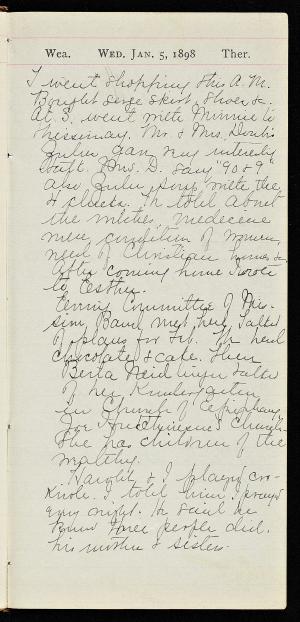 Wea. WED. JAN. 5, 1898 Ther.
I went shopping this A.M.
Bought serge skirt, shoes &c.
At 3. went with Minnie to
Missionary. Mr. & Mrs.
gave very interesting
talk. Mrs. D. sang "90 & 9"
also sung with the
4 He told about
the medecine
men, condition of women,
need of Christian homes &c
After coming home I wrote
to Esther.
Committee of Mis-
sion Band met here, talked
of plans for Feb. We had
chocolate & cake. Then
talked
of her Kindergarten
in Church of Epiphany,
Joe Church.
She has children of the
wealthy.
& I played cro-
kinole. I told him I prayed
every night. He said he
knew three people did.
his mother & sisters.